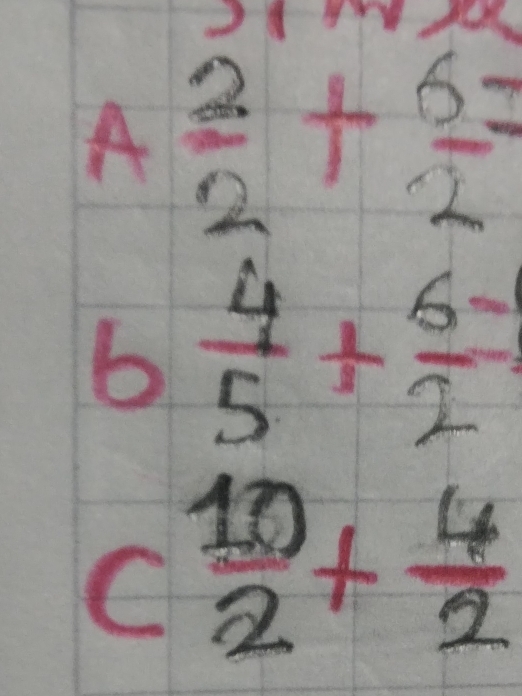 A 2/2 + 6/2 =
b 4/5 + 6/2 =
C 10/2 + 4/2